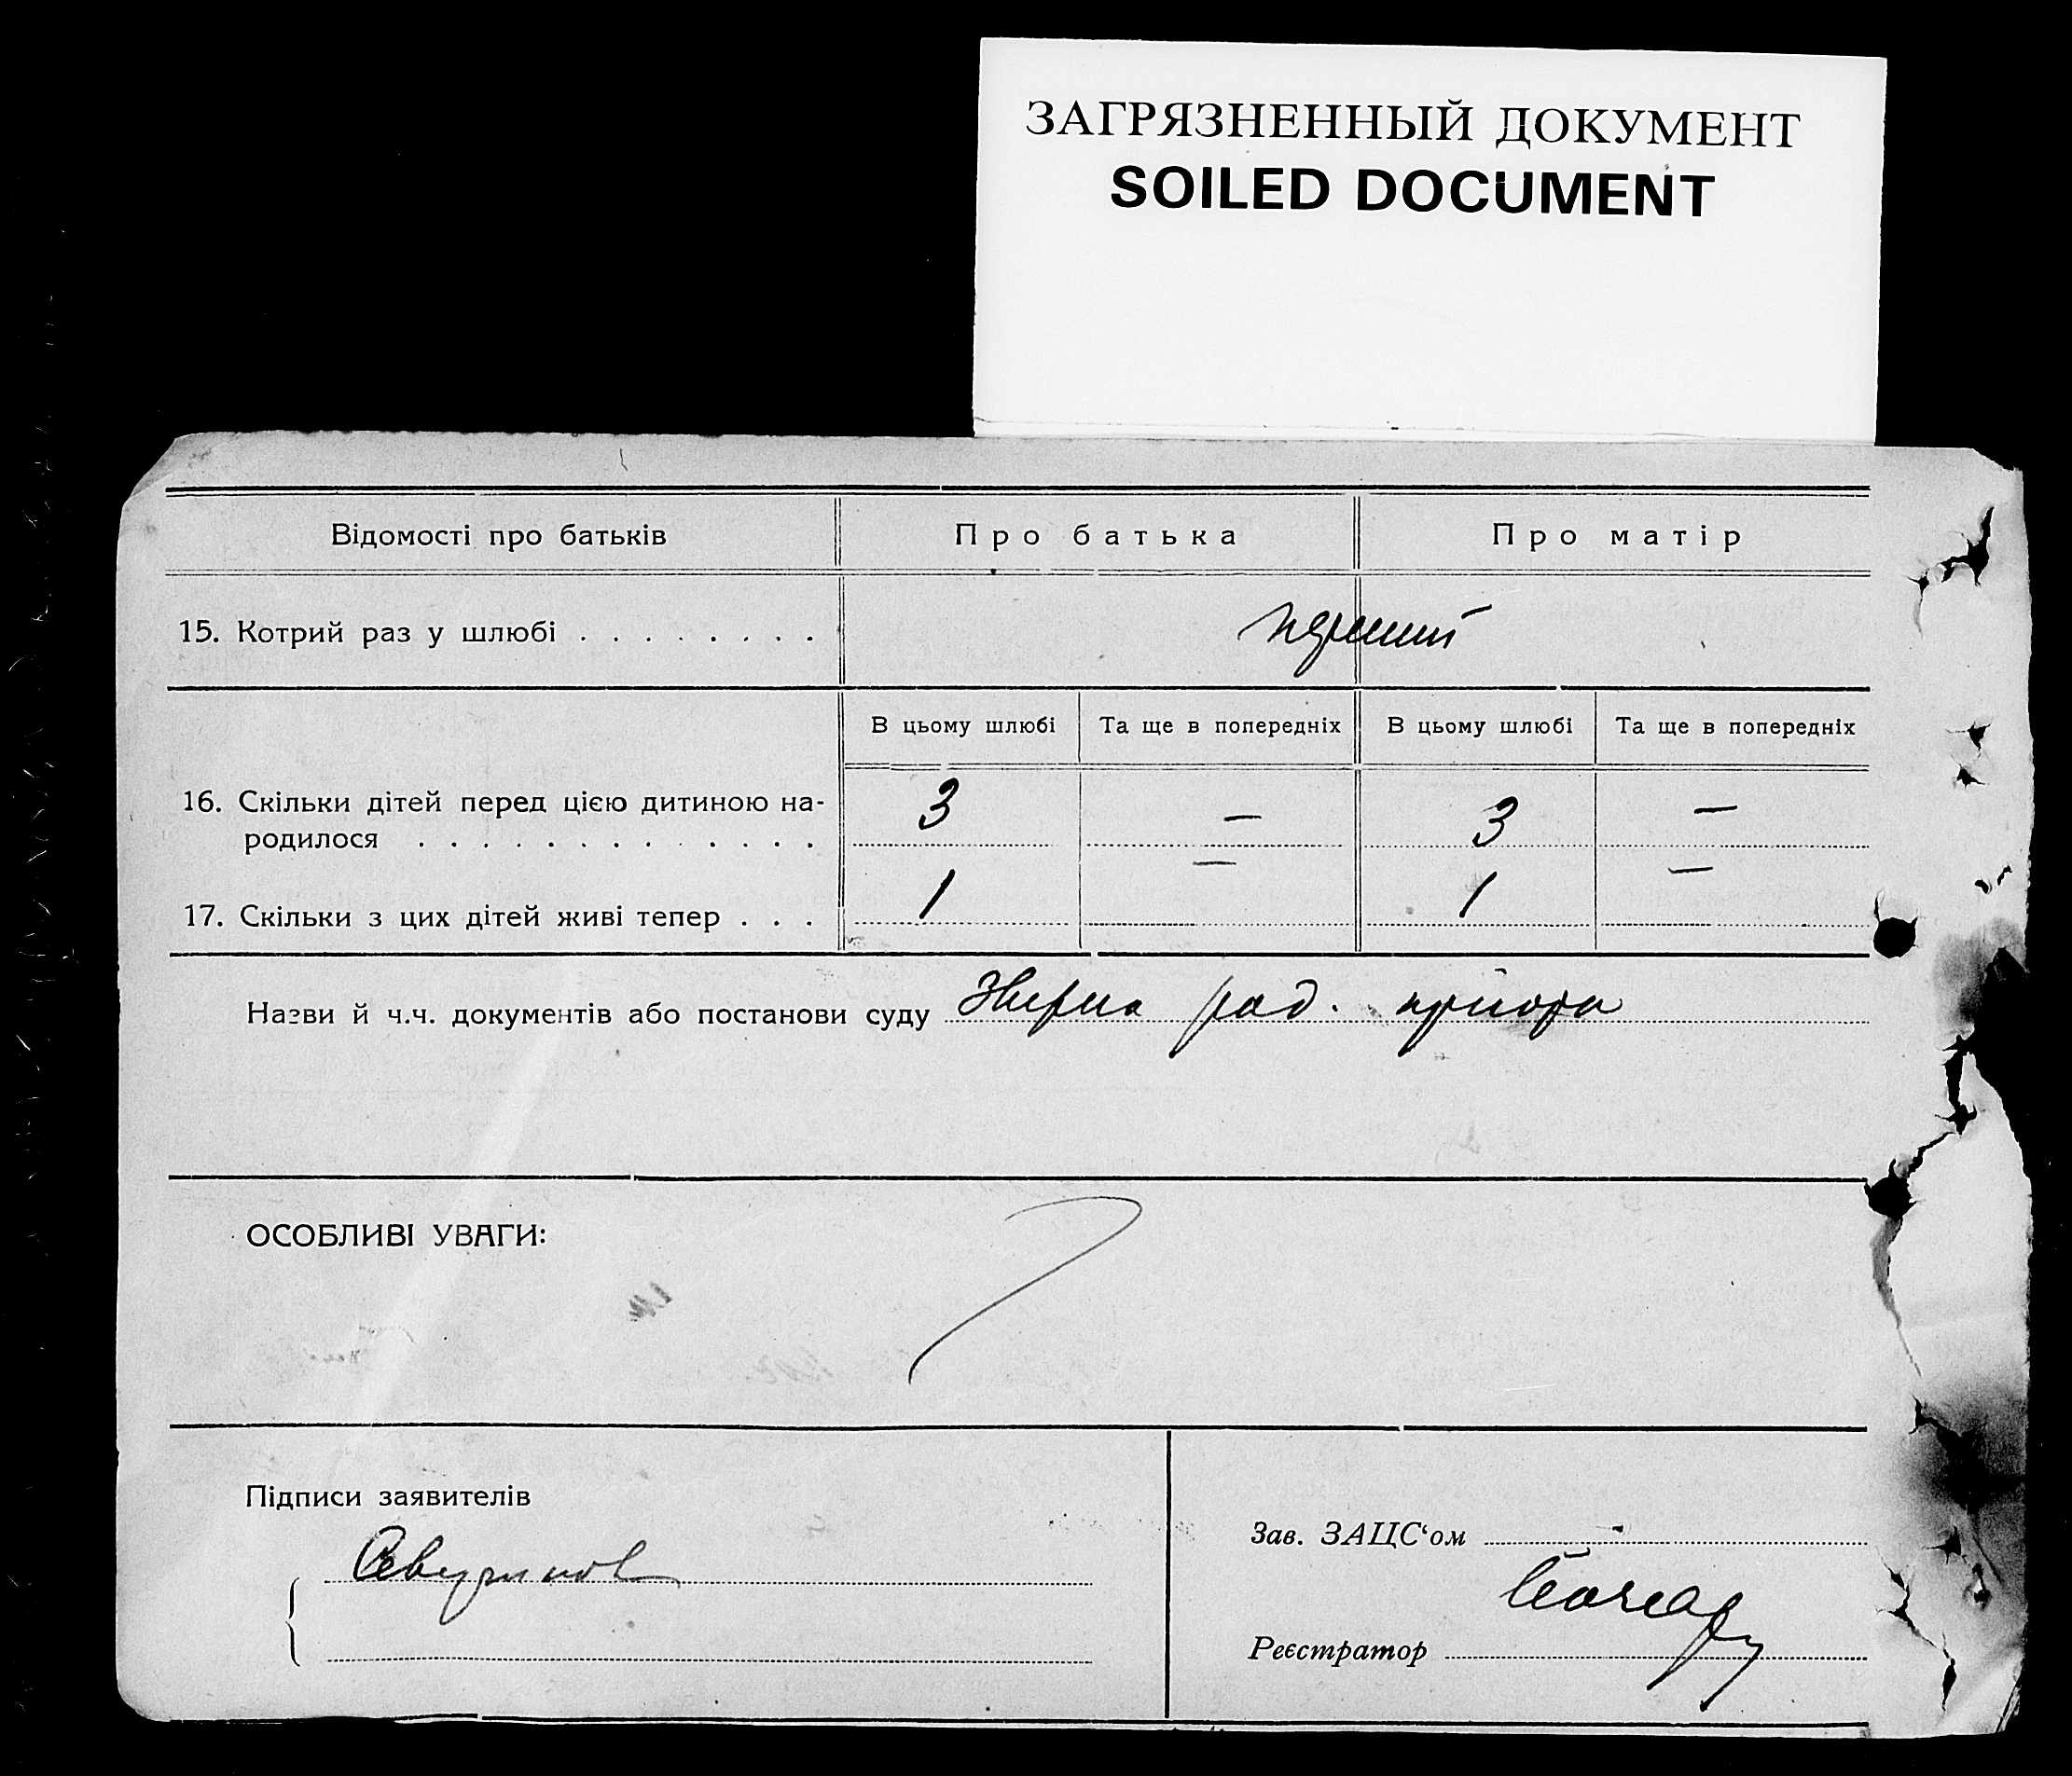 ЗАГРЯЗНЕННЫЙ ДОКУМЕНТ
SOILED DOCUMENT
Відомості про батьків Про батька Про матір
15. Котрий раз у шлюбі . . . . . . . . перший
В цьому шлюбі Та ще в попередніх В цьому шлюбі Та ще в попередніх
16. Скільки дітей перед цією дитиною на- 3 — 3 —
родилося . . . . . . . . . . . . .
17. Скільки з цих дітей живі тепер . . . 1 — 1 —
Назви й ч.ч. документів або постанови суду
ОСОБЛИВІ УВАГИ:
Підписи заявителів
Зав. ЗАЦС‘ом
Реєстратор